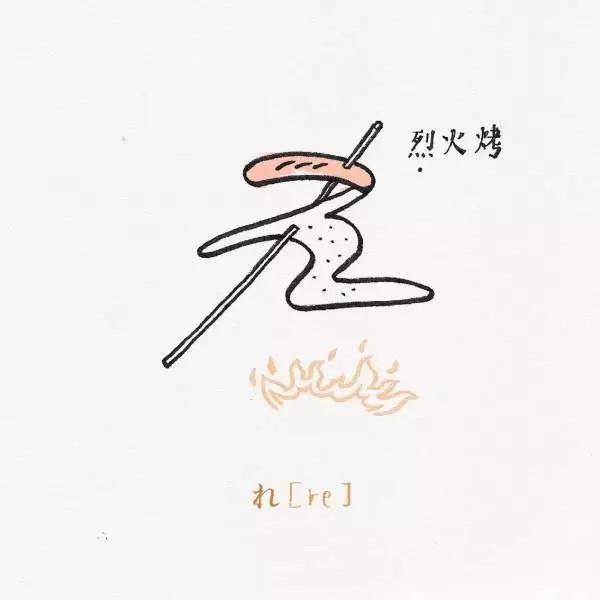 烈火烤
れ[re]